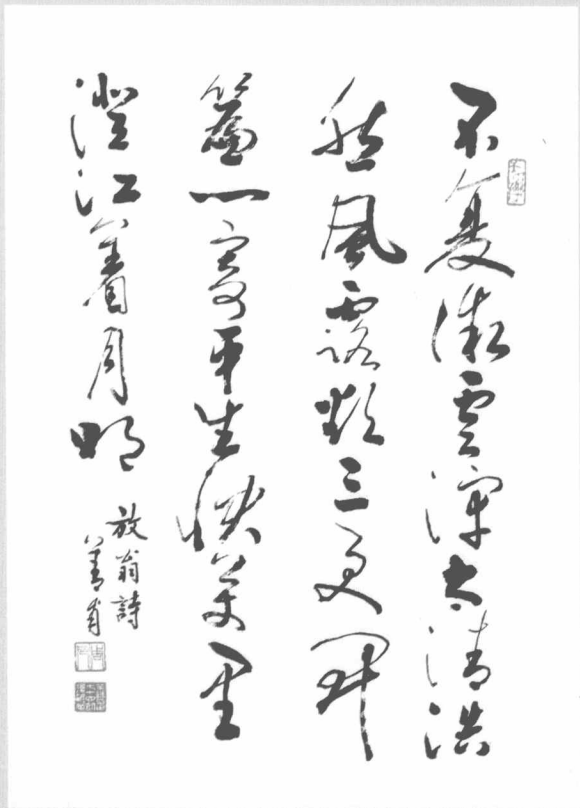 不复微雲滓太清浩
然風露欲三更開
簾一寄平生快萬里
澄江着月明
放翁詩